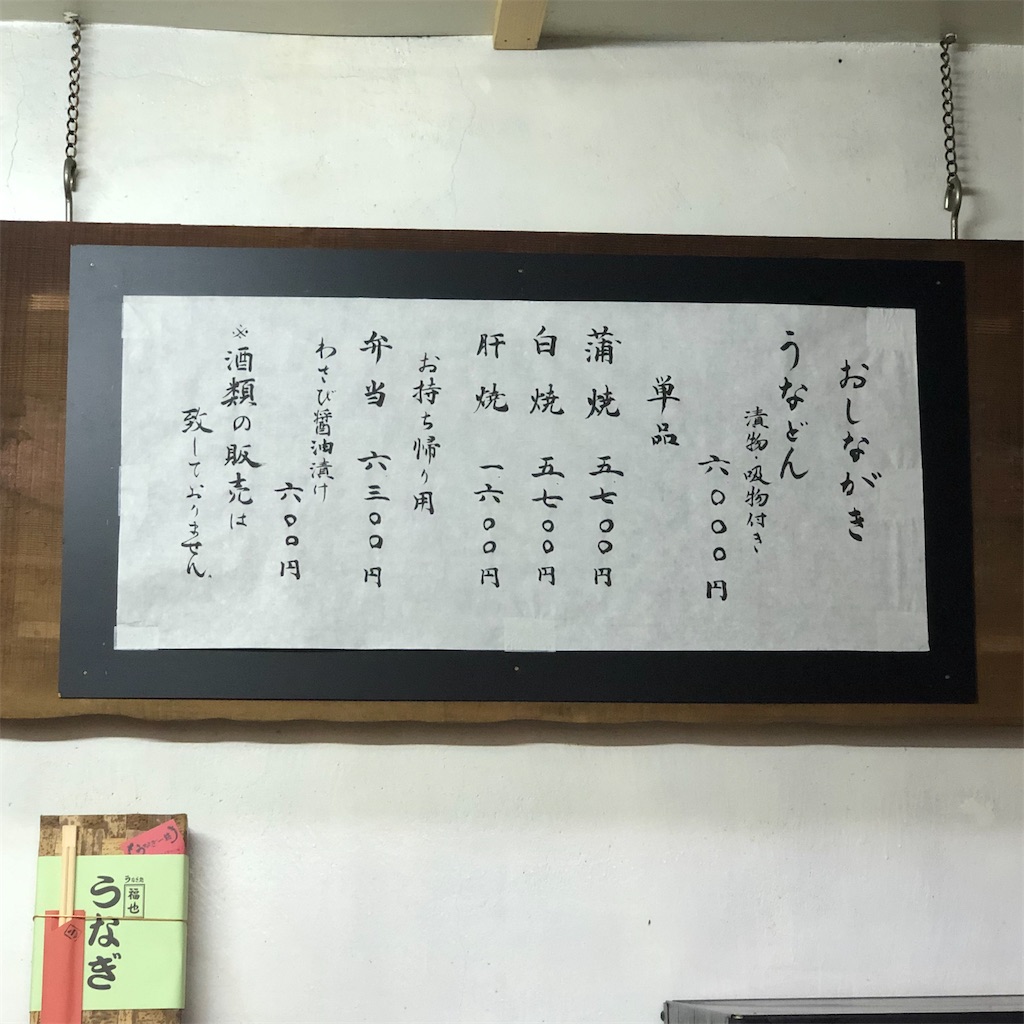 おしながき
うなどん
漬物・吸物付き
六〇〇〇円
単品
蒲焼 五七〇〇円
白焼 五七〇〇円
肝焼 一六〇〇円
お持ち帰り用
弁当 六三〇〇円
わさび醤油漬け
六〇〇円
※酒類の販売は
致しておりません。
福也
うなぎ